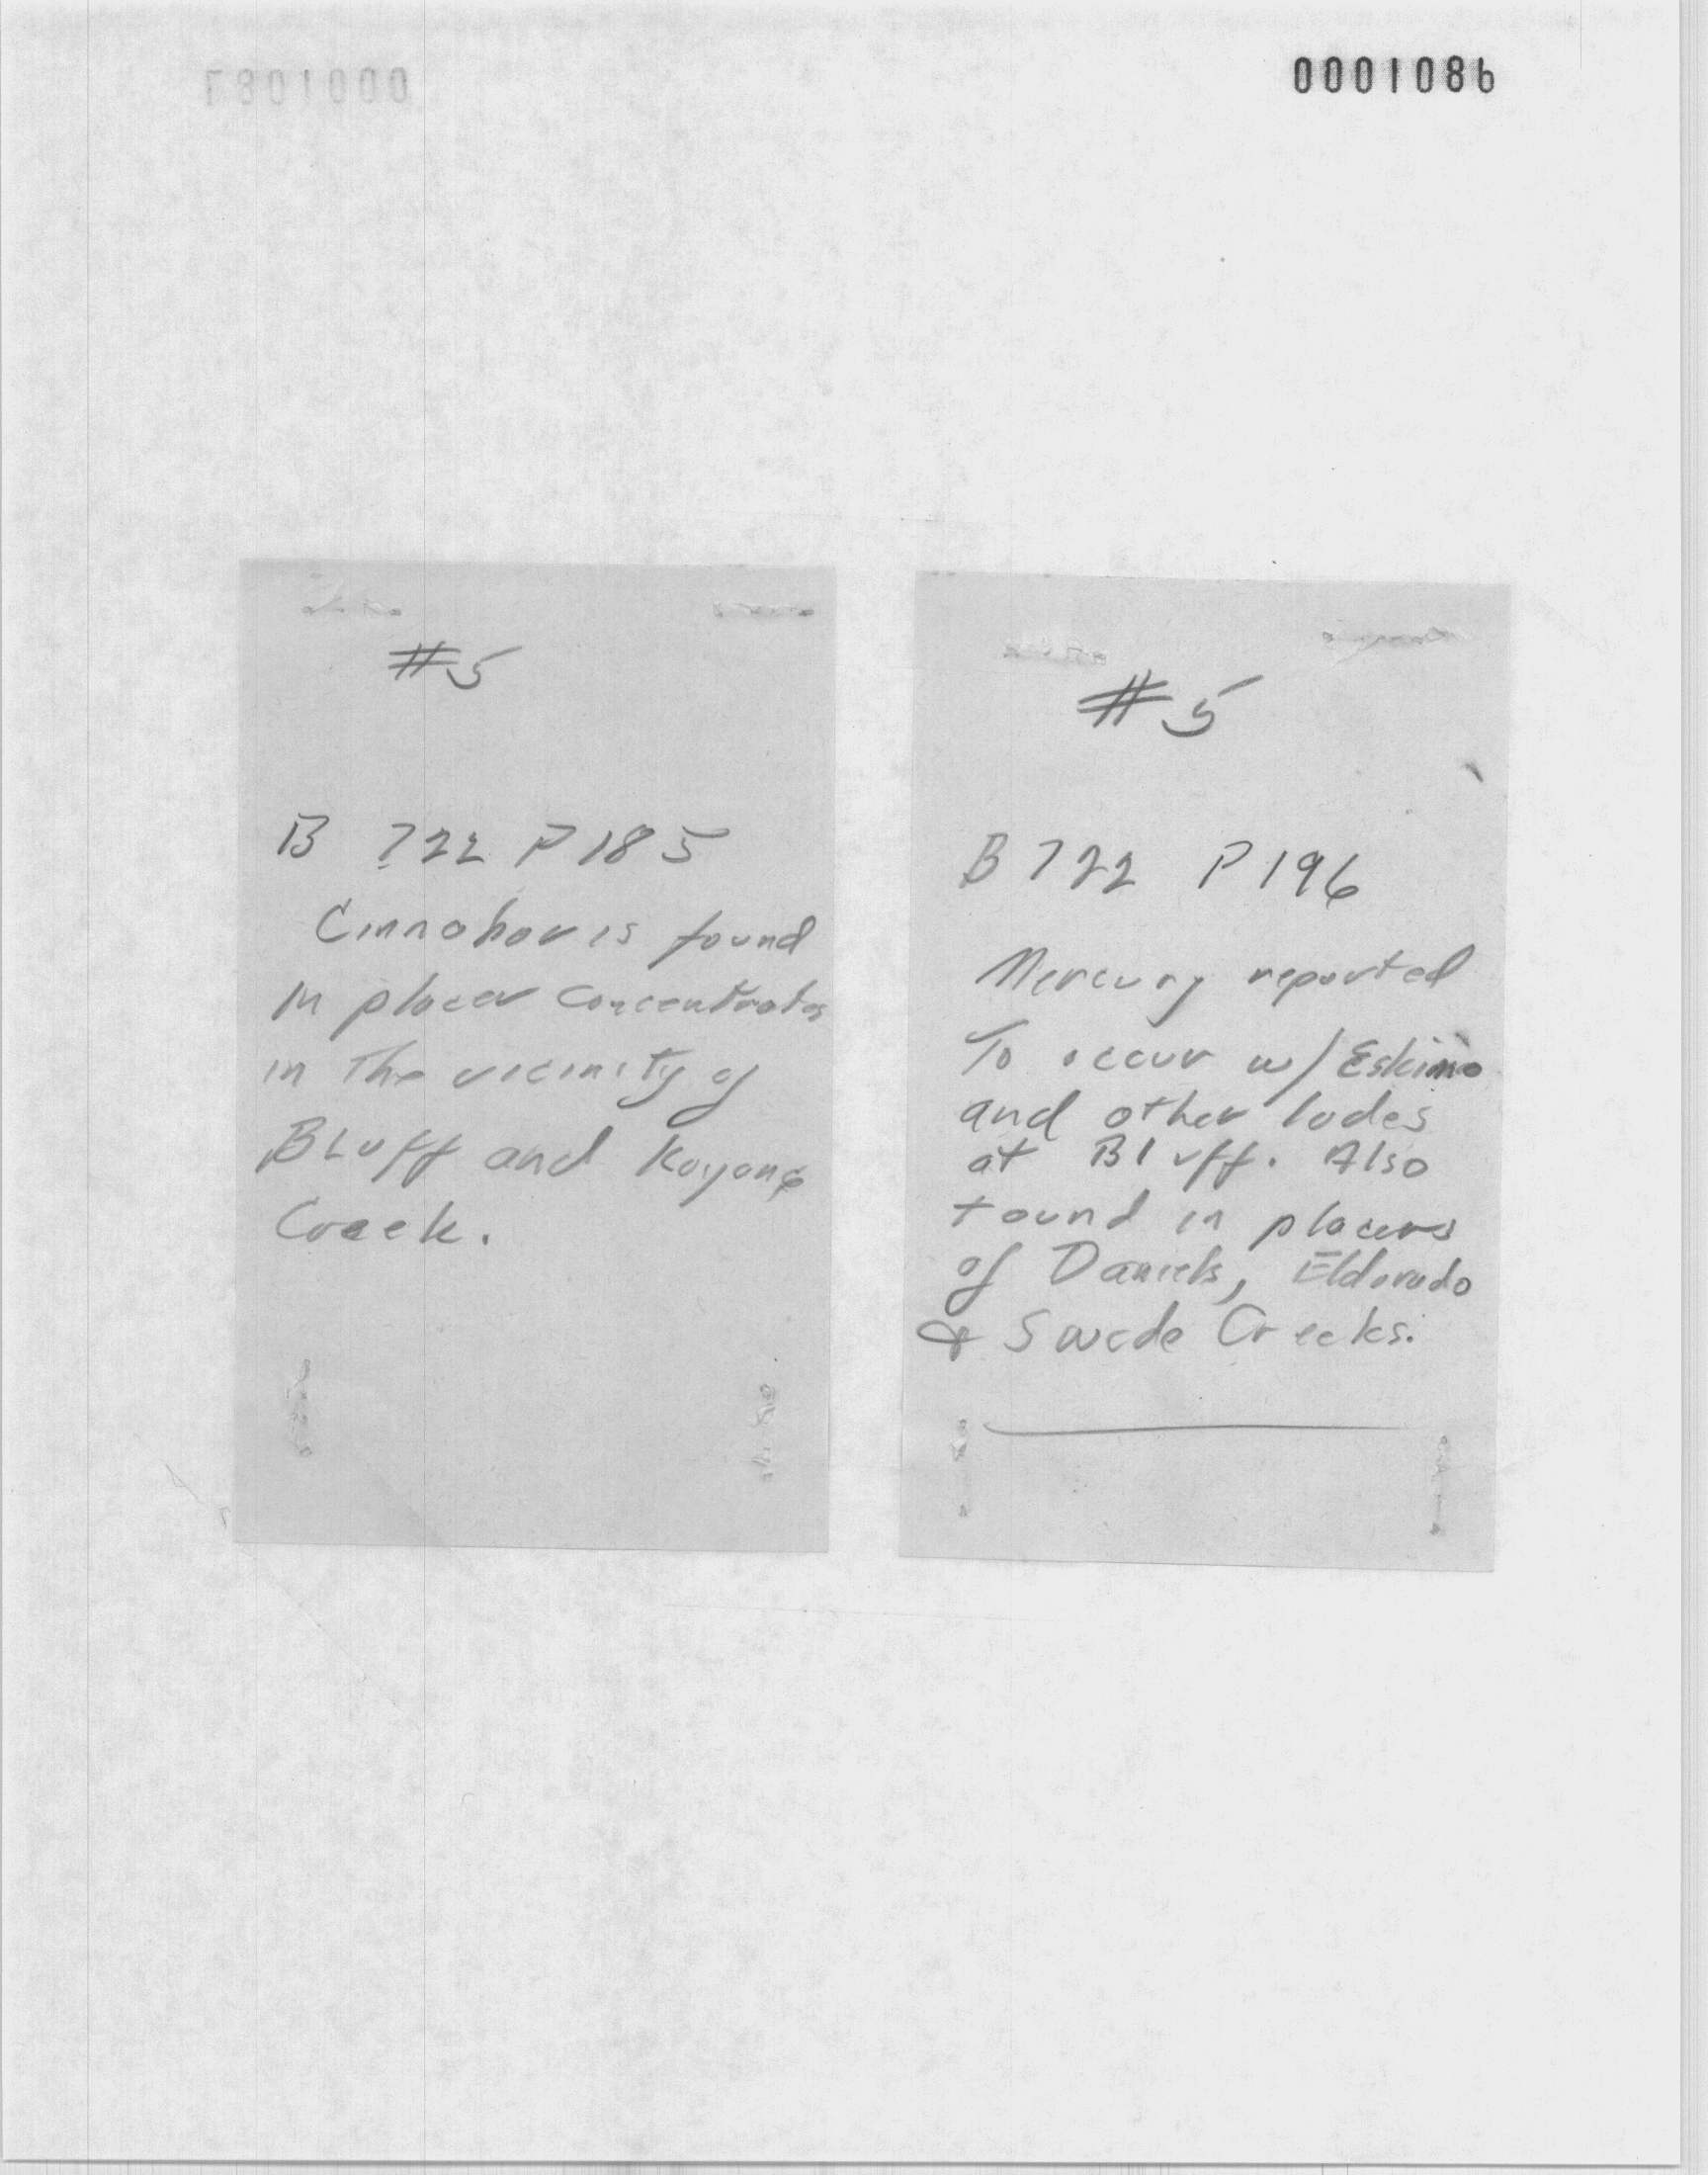 0001086
#5
B 722 P 185
Cinnabar is found
in placer concentrates
in the vicinity of
Bluff and Koyana
Creek.
#5
B 722 P 196
Mercury reported
To occur w/ Eskimo
and other lodes
at Bluff. Also
found in placers
of Daniels, Eldorado
& Swede Creeks.